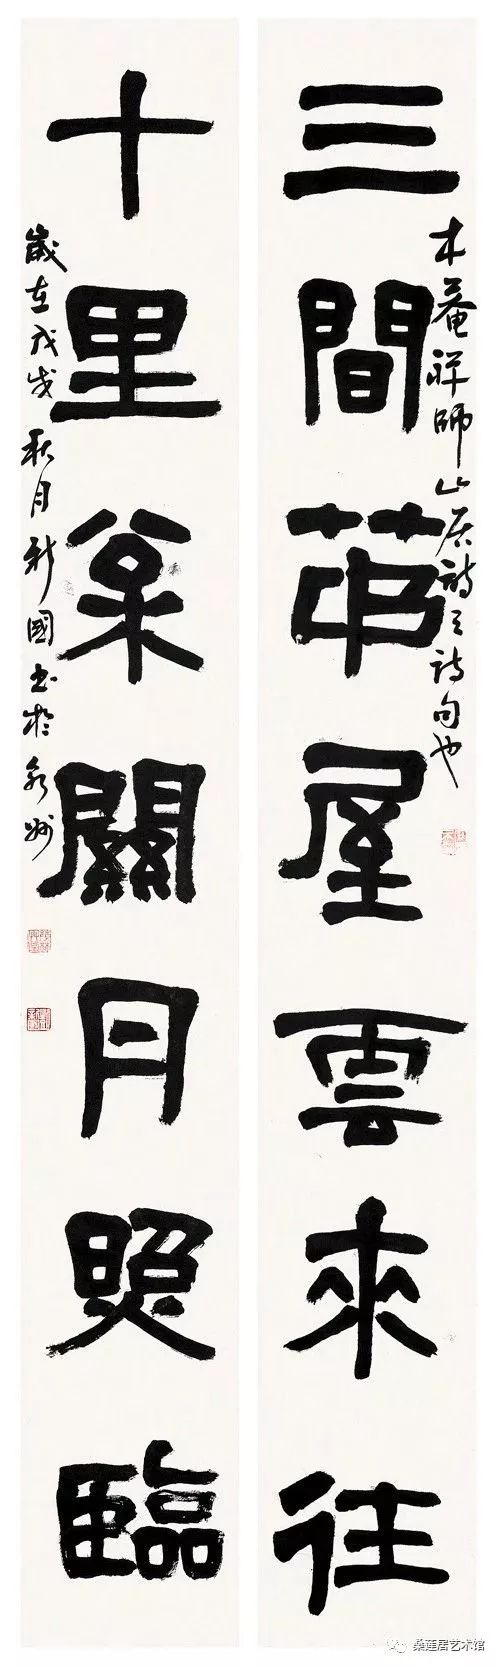 三間茆屋雲來往
木菴禪師山居詩之詩句也
十里枀關月照臨
歲在戊戌秋月新國书於泉州
桑莲居艺术馆